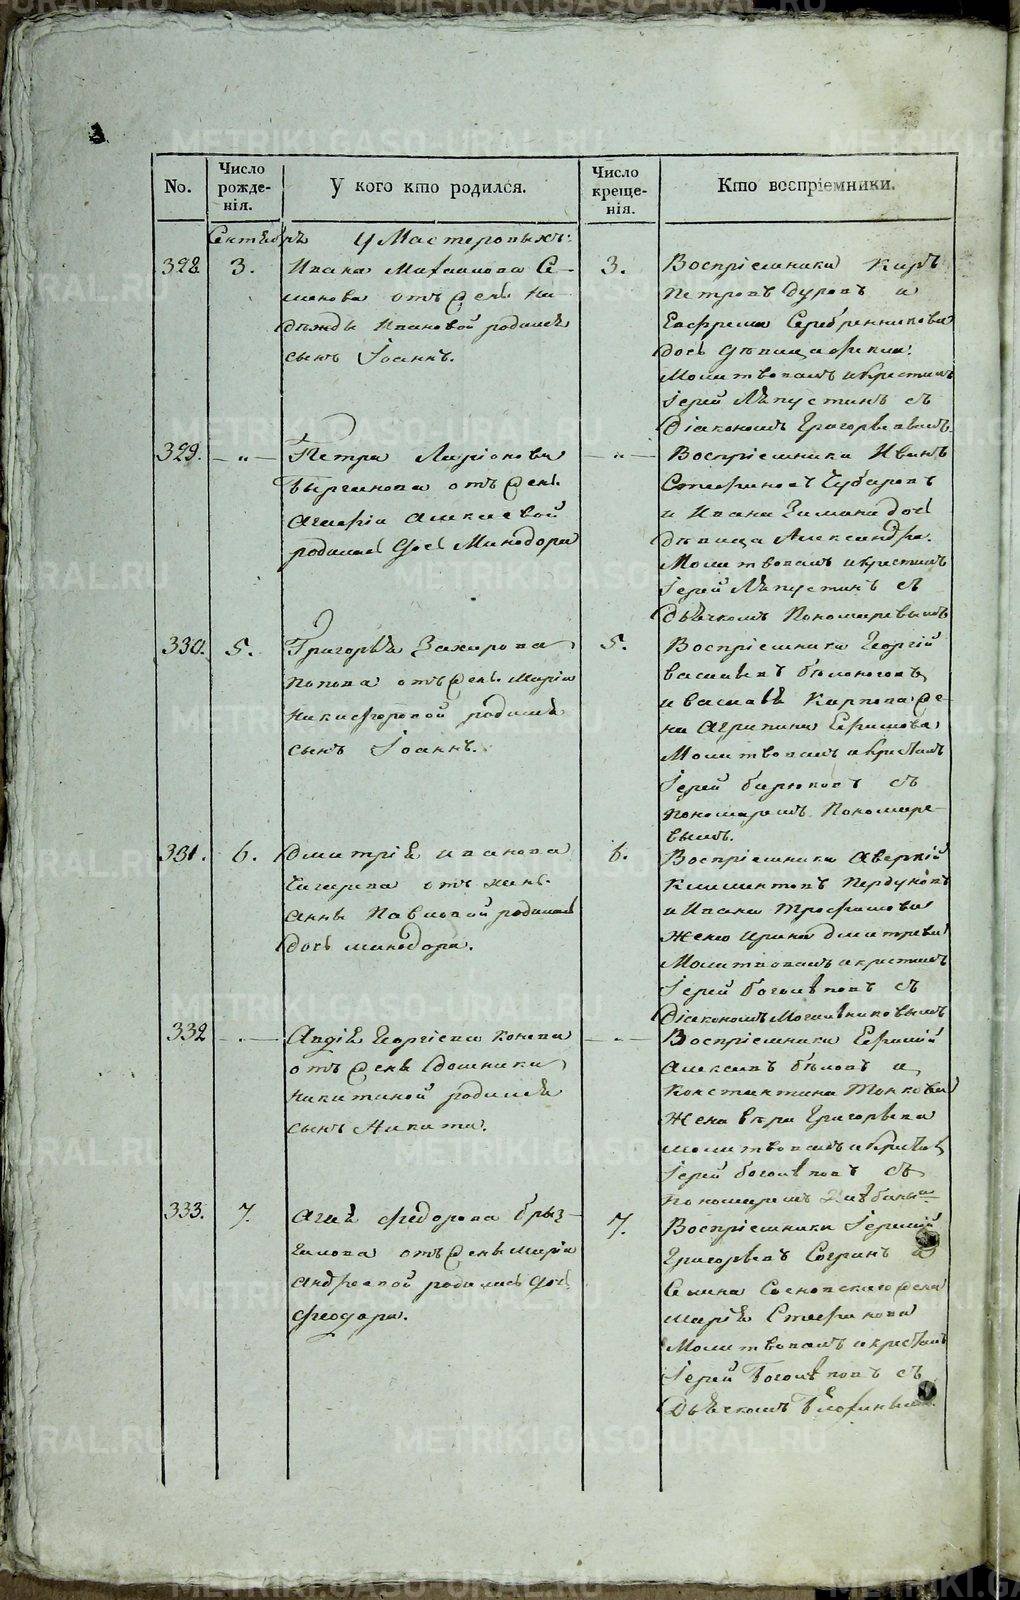 No.
Число рожде-нія.
У кого кто родился.
Число креще-нія.
Кто воспріемники.
Сентябрь У Мастеровыхъ:
328 3.
Ивана Михаилова Се-
менова отъ жены На-
дежды Ивановой родился
сынъ Іоаннъ.
3.
Воспріемники Киръ
Петровъ Дуровъ и
Ефрема Серебренникова
дочь дѣвица
Молитвовалъ и крестилъ
Іерей Лѣпустинъ съ
Діакономъ
329. — „ —
Петра Ларіонова
отъ жены
родилась дочь Минодора
— „ —
Воспріемники Иванъ
Чубаровъ
и Ивана Зимина дочь
дѣвица Александра.
Молитвовалъ и крестилъ
Іерей Лѣпустинъ съ
Дьячкомъ Пономаревымъ
330. 5.
Григорья Захарова
Попова отъ жены Маріи
Никифоровой родился
сынъ Іоаннъ.
5.
Воспріемники Георгій
Васильевъ Бѣлоноговъ
и Василья Карпова же-
на Агрипина Ефимова
Молитвовалъ и крестилъ
Іерей Бирюковъ съ
Пономаремъ Пономаре-
вымъ.
331. 6.
Дмитрія Иванова
Чигирева отъ жены
Анны Павловой родилась
дочь Минодора.
6.
Воспріемники Аверкій
Климентовъ Пердуновъ
и Ивана Трофимова
жена Ирина Дмитрева
Молитвовалъ и крестилъ
Іерей Боголѣповъ съ
Діакономъ Могильниковымъ
332 — . —
Авдія Георгіева Конева
отъ жены Домники
Никитиной родился
сынъ Никита.
— . —
Воспріемники Ефимій
Алексѣевъ Бѣловъ и
Константина Тонкова
жена Вѣра Григорьева
молитвовалъ и крестилъ
Іерей Боголѣповъ съ
Пономаремъ
333. 7.
Агея Федорова Брыз-
галова отъ жены Маріи
Андреевой родилась дочь
Феодора.
7.
Воспріемники Іеремій
Григорьевъ Согринъ и
Семина Сосновскаго жена
Марія Стефанова
Молитвовалъ и крестилъ
Іерей Боголѣповъ съ
METRIKI.GASO-URAL.RU